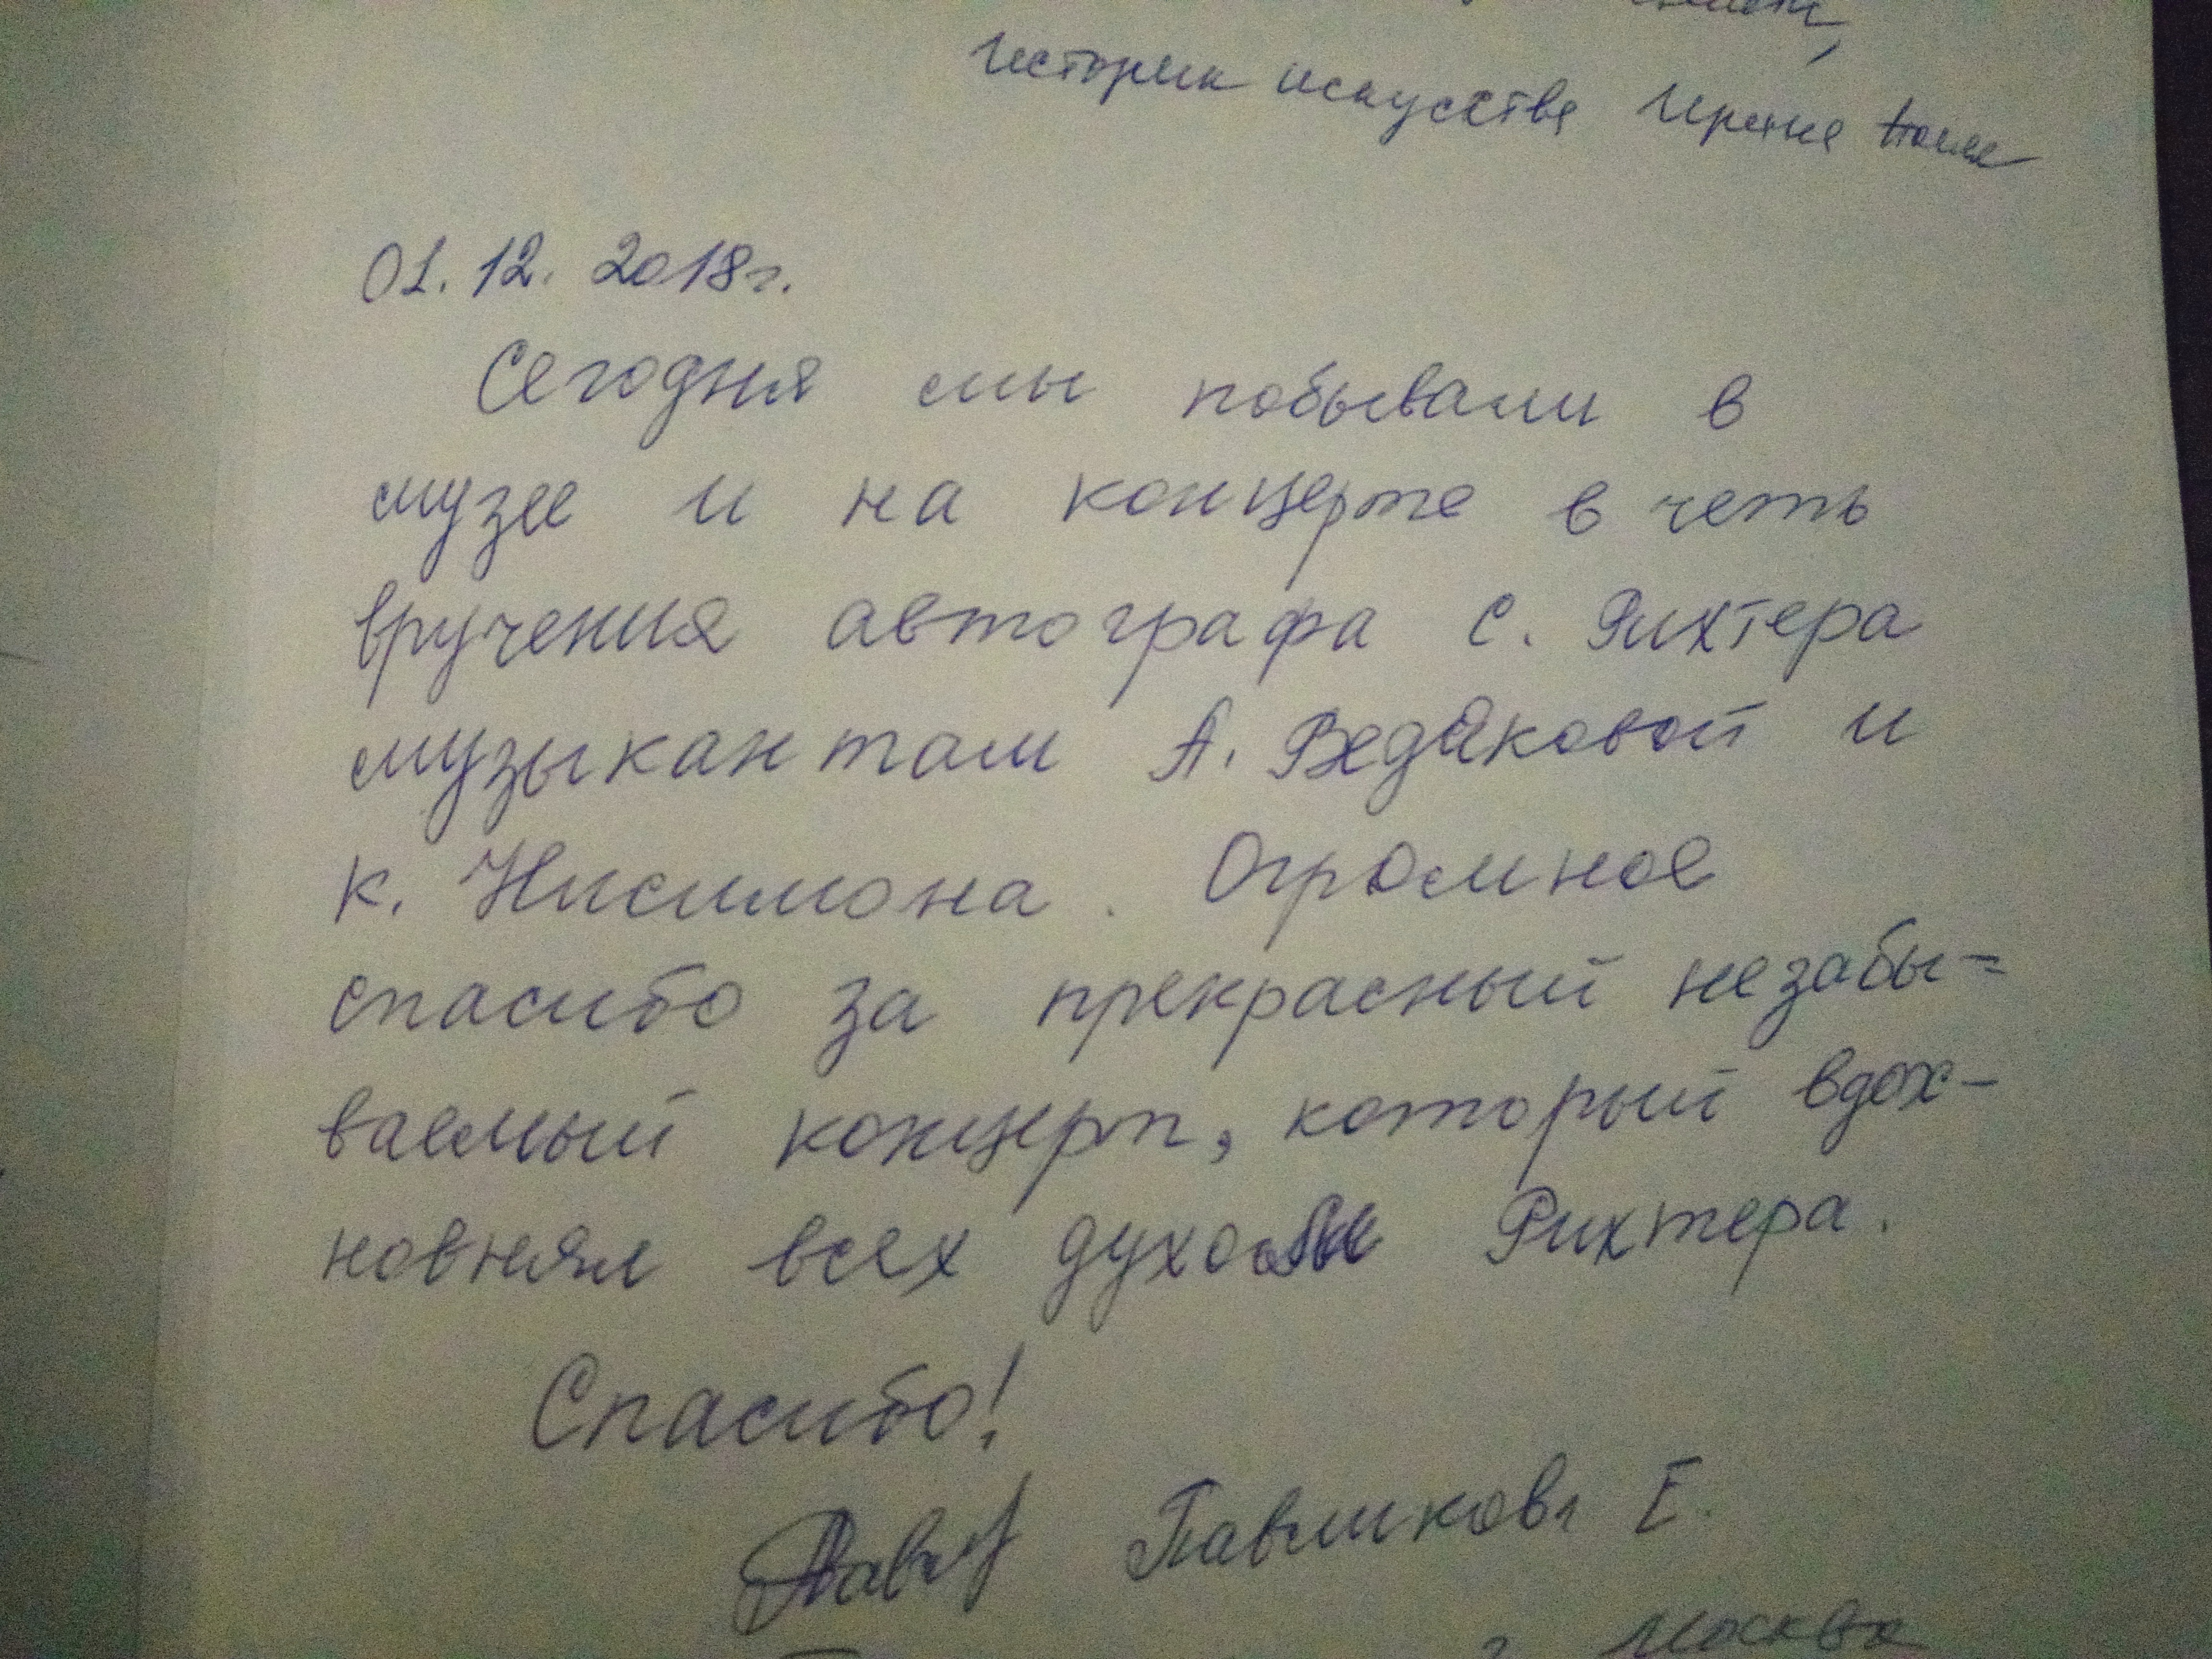 историк искусства Ирина
01.12.2018г.
Сегодня мы побывали в
музее и на концерте в четь
вручения автографа С. Рихтера
музыкантам А. Ведяковой и
К. Нисимона. Огромное
спасибо за прекрасный незабы=
ваемый концерт, который вдох-
новнял всех духом Рихтера.
Спасибо!
Павликова Е.
г. Москва